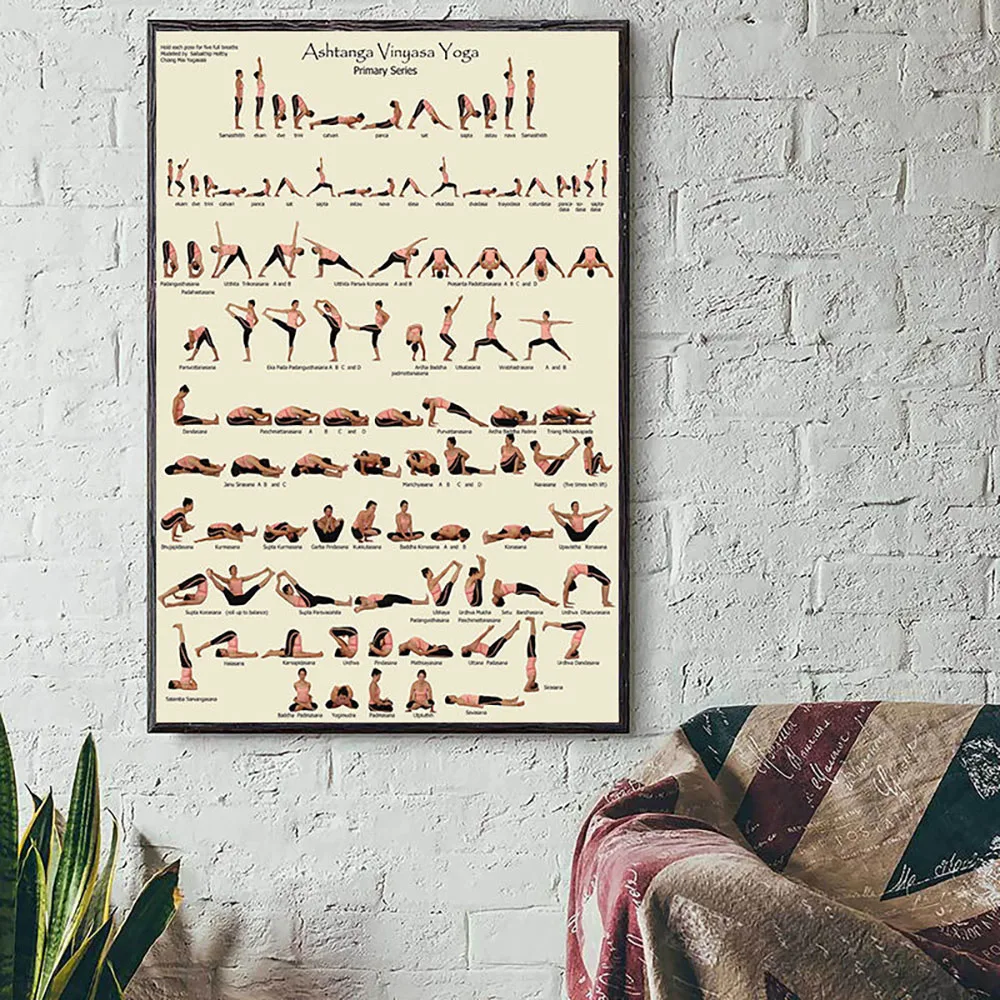 Hold each pose for five full breaths
Ashtanga Vinyasa Yoga
Primary Series
Samasthitih ekam dve trini catvari panca sat sapta astau nava Samasthitih
ekam dve trini catvari panca sat sapta astau nava dasa ekadasa dvadasa trayodasa caturdasa
Padangusthasana
Padahastasana
Utthita Trikonasana A and B
Utthita Parsva Konasana A and B
Prasarita Padottanasana A B C and D
Parsvottanasana
Eka Pada Padangusthasana A B C and D
Ardha Baddha
padmottanasana
Utkatasana
Virabhadrasana A and B
Dandasana
Paschimattanasana A B C and D
Purvottanasana
Ardha Baddha Padma
Triang Mukhaekapada
Janu Sirasana A B and C
Marichyasana A B C and D
Navasana (five times with lift)
Bhujapidasana
Kurmasana
Supta Kurmasana
Garba Pindasana
Kukkutasana
Baddha Konasana A and B
Konasana
Upavistha Konasana
Supta Konasana (roll up to balance)
Supta Parsvasahita
Ubhaya
Padangusthasana
Urdhva Mukha
Paschimottanasana
Setu Bandhasana
Urdhva Dhanurasana
Salamba Sarvangasana
Halasana
Karnapidasana
Urdhva
Pindasana
Mathsyasana
Uttana Padasana
Sirsasana
Urdhva Dandasana
Baddha Padmasana
Yogimudra
Padmasana
Utpluthih
Savasana